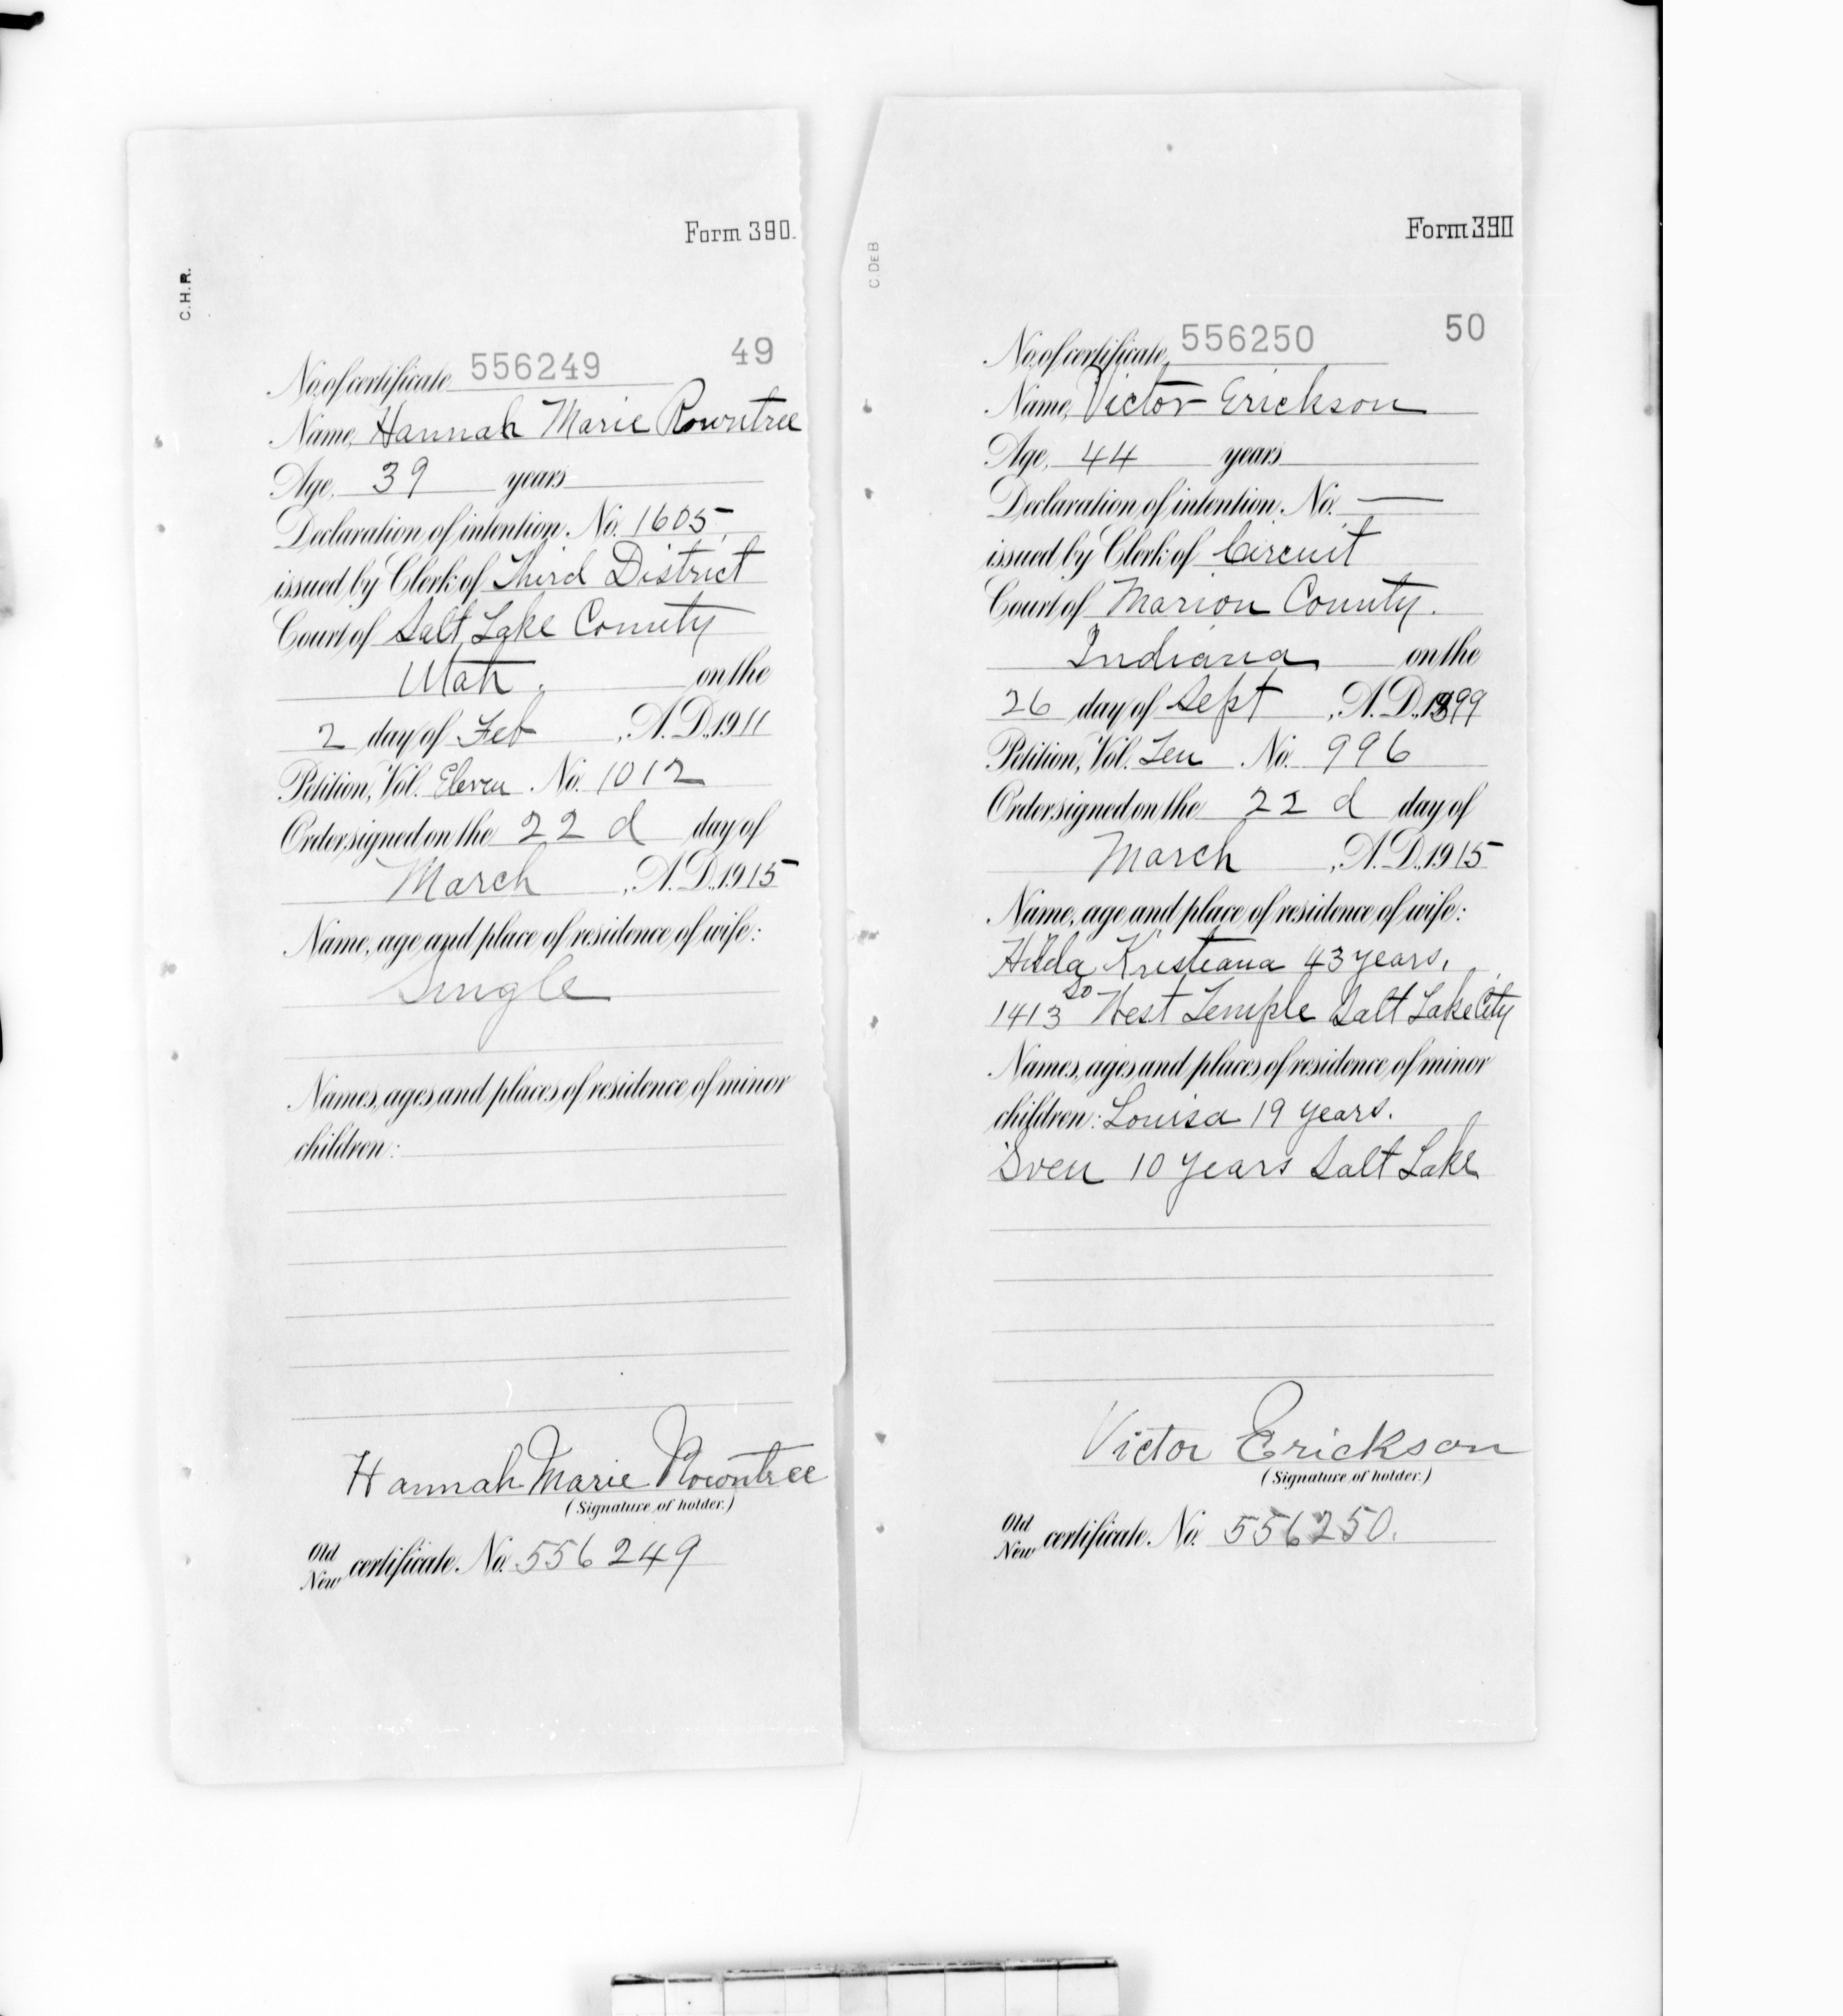 C.H.R.
Form 390.
No. of certificate, 556249 49
Name, Hannah Marie Rowntree
Age, 39 years
Declaration of intention, No. 1605,
issued by Clerk of Third District
Court of Salt Lake County
Utah, on the
2 day of Feb , A.D., 1911
Petition, Vol. Eleven . No. 1012
Order signed on the 22 d day of
March , A.D., 1915
Name, age and place of residence of wife:
Single
Names, ages and places of residence of minor
children:
Hannah Marie Rowntree
(Signature of holder.)
Old
New certificate. No. 556249
C. DEB
Form 390
No. of certificate, 556250 50
Name, Victor Erickson
Age, 44 years
Declaration of intention, No. —
issued by Clerk of Circuit
Court of Marion County.
Indiana, on the
26 day of Sept , A.D., 1899
Petition, Vol. Ten No. 996
Order signed on the 22 d day of
March , A.D., 1915
Name, age and place of residence of wife:
Hilda Kristiana 43 years,
1413 So West Temple Salt Lake City
Names, ages and places of residence of minor
children: Louisa 19 years.
Sven 10 years Salt Lake
Victor Erickson
(Signature of holder.)
Old
New certificate. No. 556250.